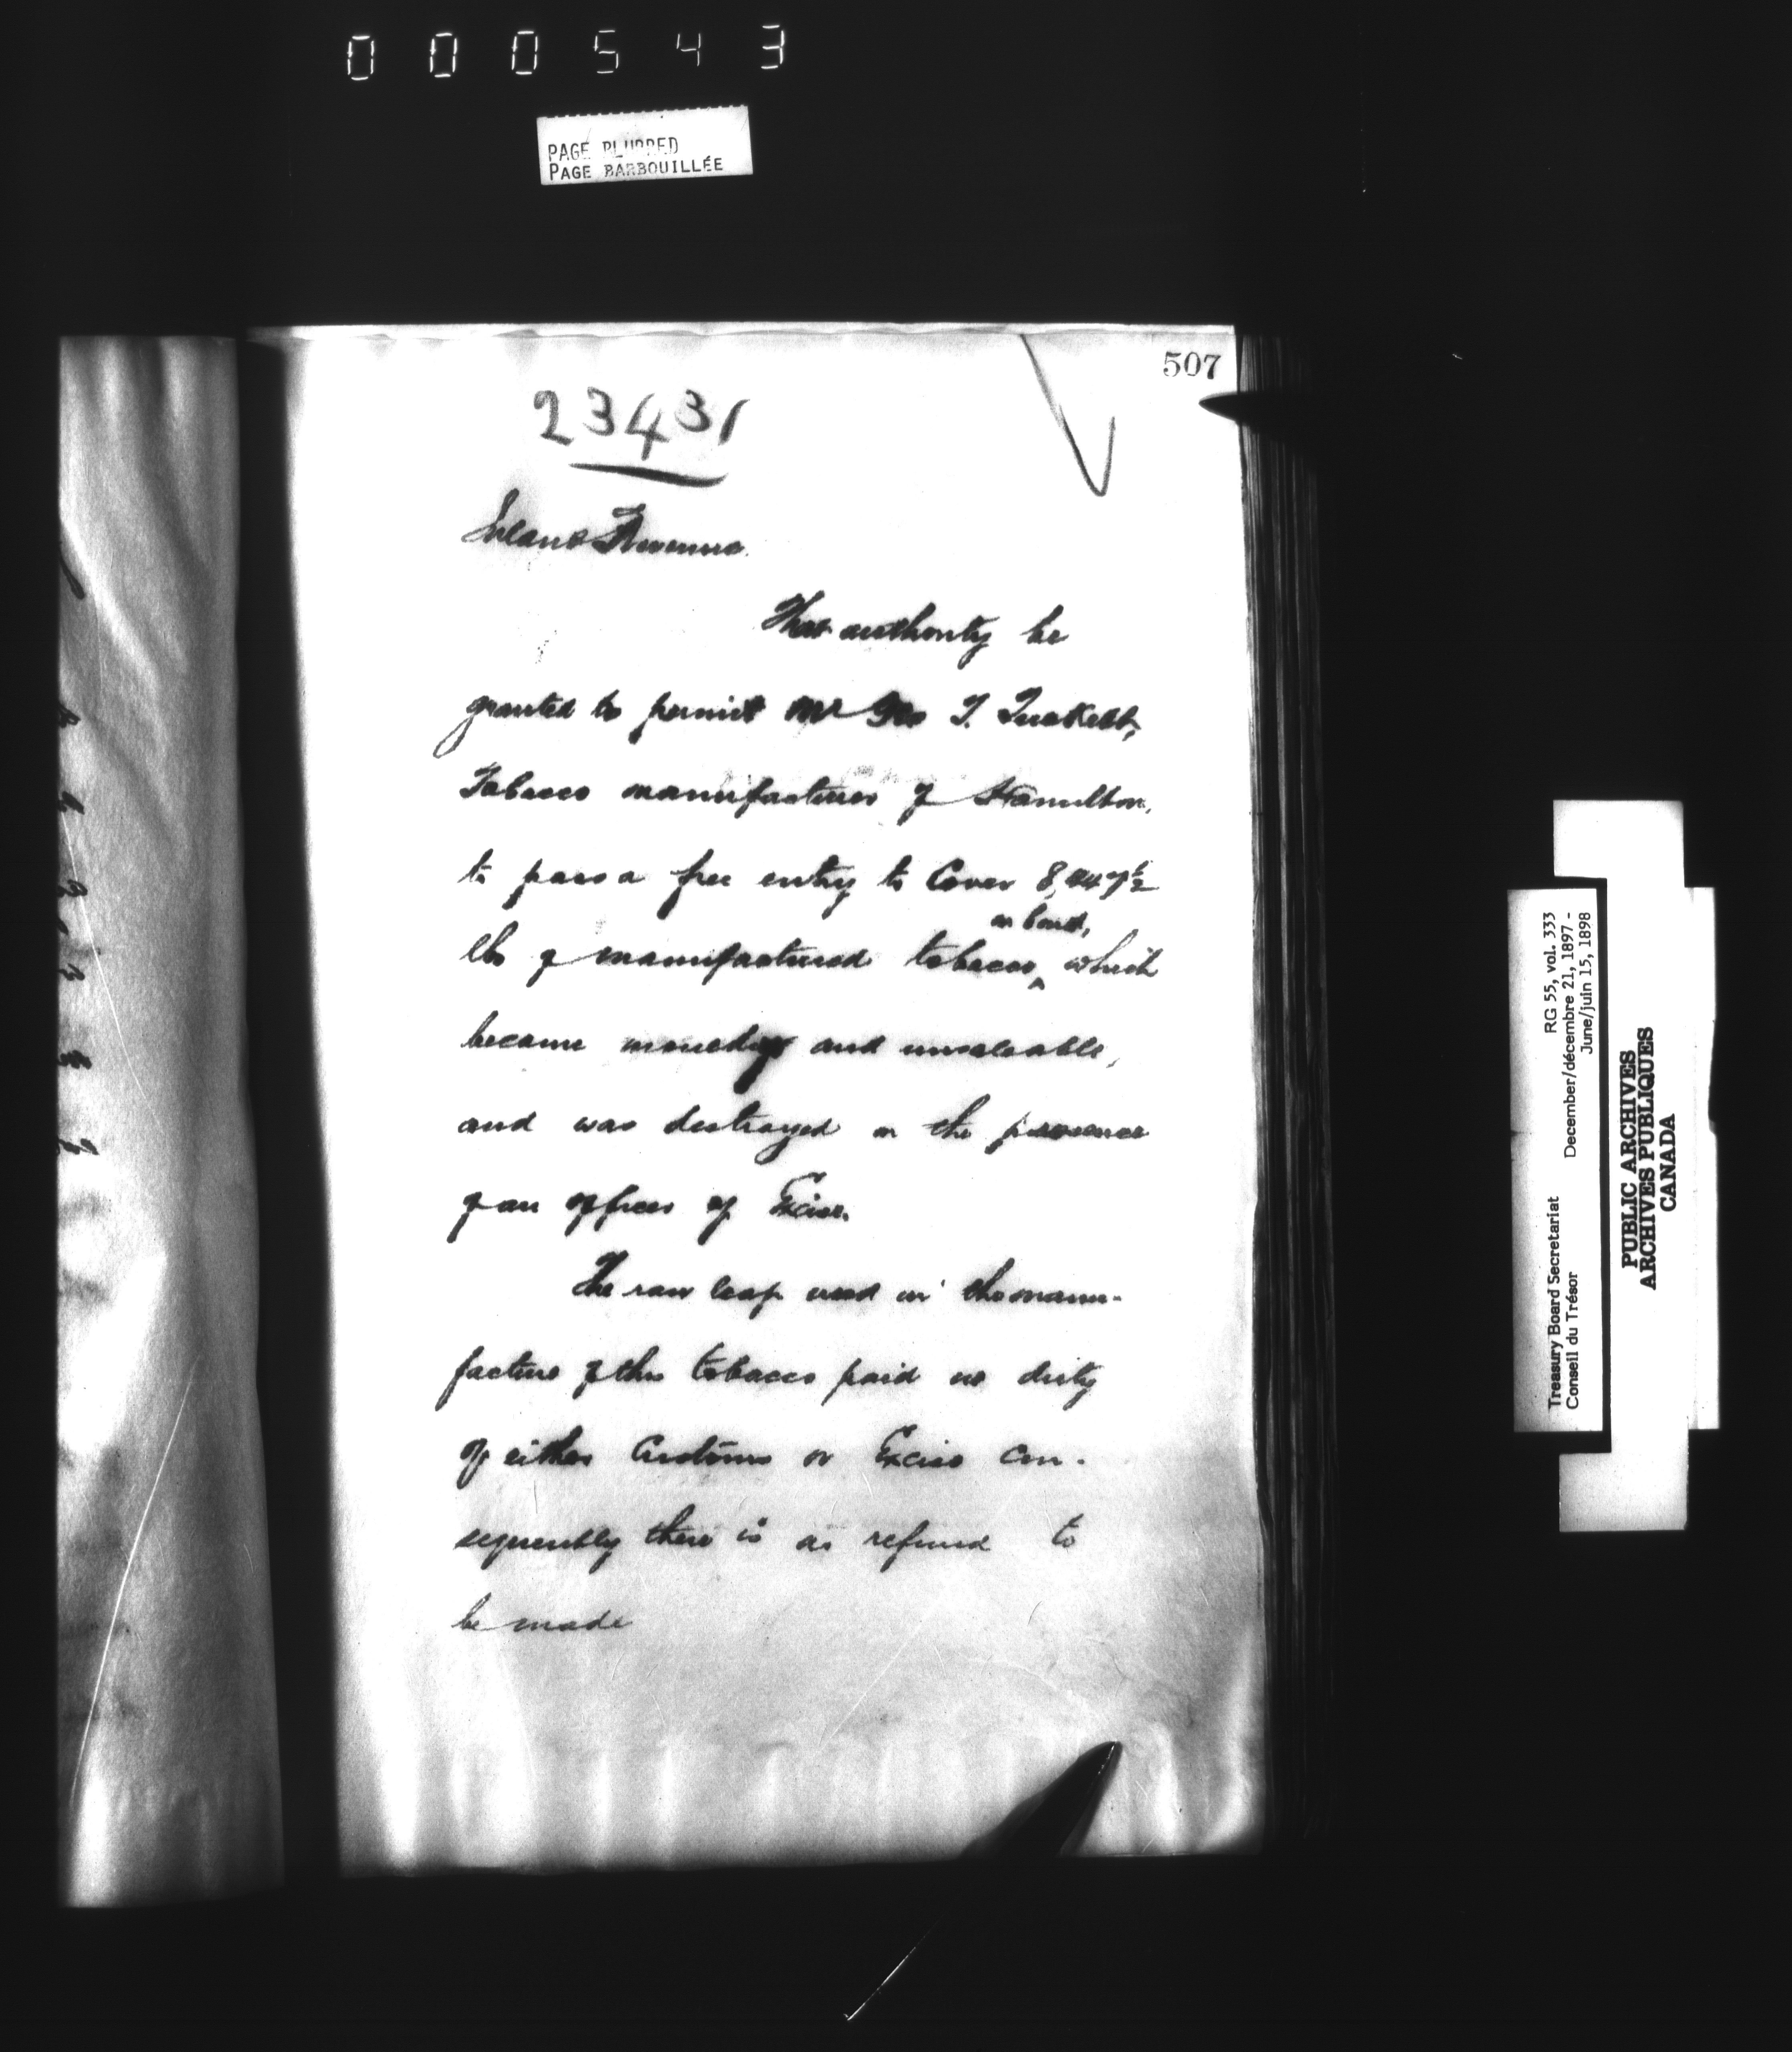 000543
PAGE BLURRED
PAGE BARBOUILLÉE
507
23431
Inland Revenue.
That authority be
granted to permit Mr Geo T. Tuckett,
Tobacco manufacturer of Hamilton,
to pass a free entry to Cover
in bond,
lbs of manufactured tobacco ‸ which
became and unsaleable,
and was destroyed in the presence
of an officer of Excise.
The raw leaf used in the manu-
facture of this tobacco paid no duty
of either Customs or Excise con-
sequently there is no refund to
be made
Treasury Board Secretariat RG 55, vol. 333
Conseil du Trésor December/décembre 21, 1897 -
June/juin 15, 1898
PUBLIC ARCHIVES
ARCHIVES PUBLIQUES
CANADA